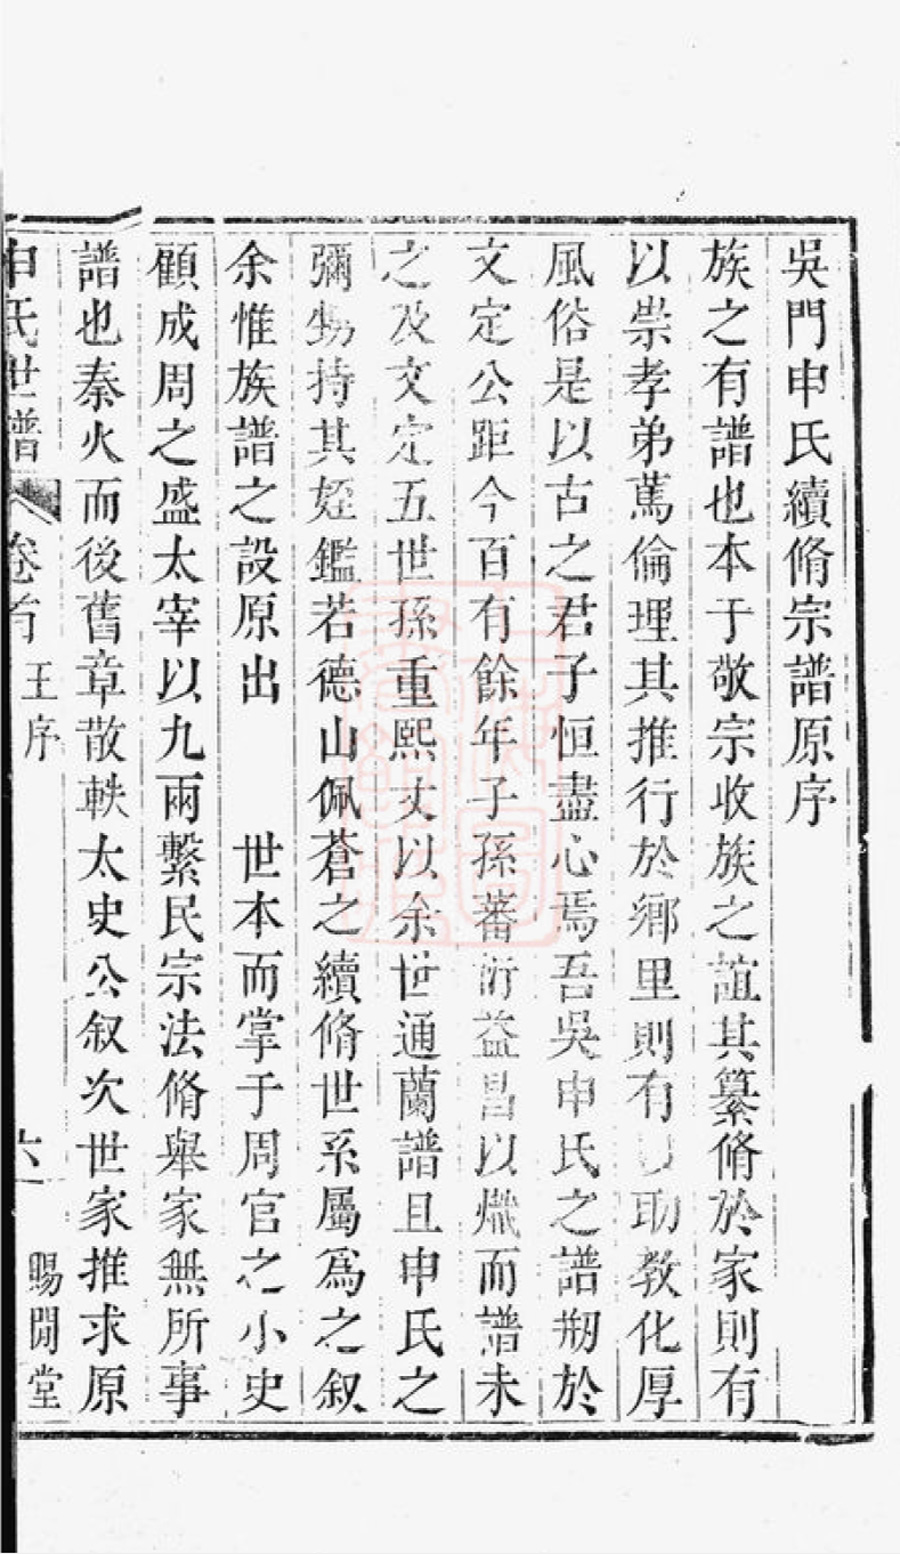 吳門申氏續脩宗譜原序
族之有譜也本于敬宗收族之誼其纂脩於家則有
以崇孝弟篤倫理其推行於鄉里則有以助教化厚
風俗是以古之君子恒盡心焉吾吳申氏之譜剏於
文定公距今百有餘年子孫蕃衍益昌以熾而譜未
之及文定五世孫重熙丈以余世通蘭譜且申氏之
彌甥持其姪鑑若德山佩蒼之續脩世系屬爲之叙
余惟族譜之設原出 世本而掌于周官之小史
顧成周之盛太宰以九兩繫民宗法脩舉家無所事
譜也秦火而後舊章散軼太史公叙次世家推求原
申氏世譜 卷首 王序 六 賜閒堂